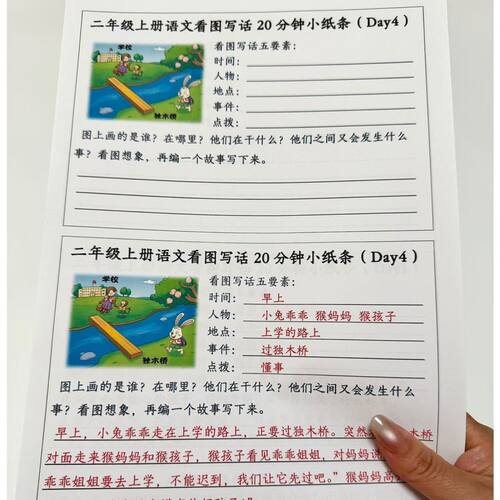 二年级上册语文看图写话 20 分钟小纸条（Day4）
学校
独木桥
看图写话五要素：
时间：
人物：
地点：
事件：
点拨：
图上画的是谁？在哪里？他们在干什么？他们之间又会发生什么
事？看图想象，再编一个故事写下来。
二年级上册语文看图写话 20 分钟小纸条（Day4）
学校
独木桥
看图写话五要素：
时间： 早上
人物： 小兔乖乖 猴妈妈 猴孩子
地点： 上学的路上
事件： 过独木桥
点拨： 懂事
图上画的是谁？在哪里？他们在干什么？他们之间又会发生什么
事？看图想象，再编一个故事写下来。
早上，小兔乖乖走在上学的路上，正要过独木桥。突然 木桥
对面走来猴妈妈和猴孩子，猴孩子看见乖乖姐姐，对妈妈
乖乖姐姐要去上学，不能迟到，我们让它先过吧。”猴妈妈高